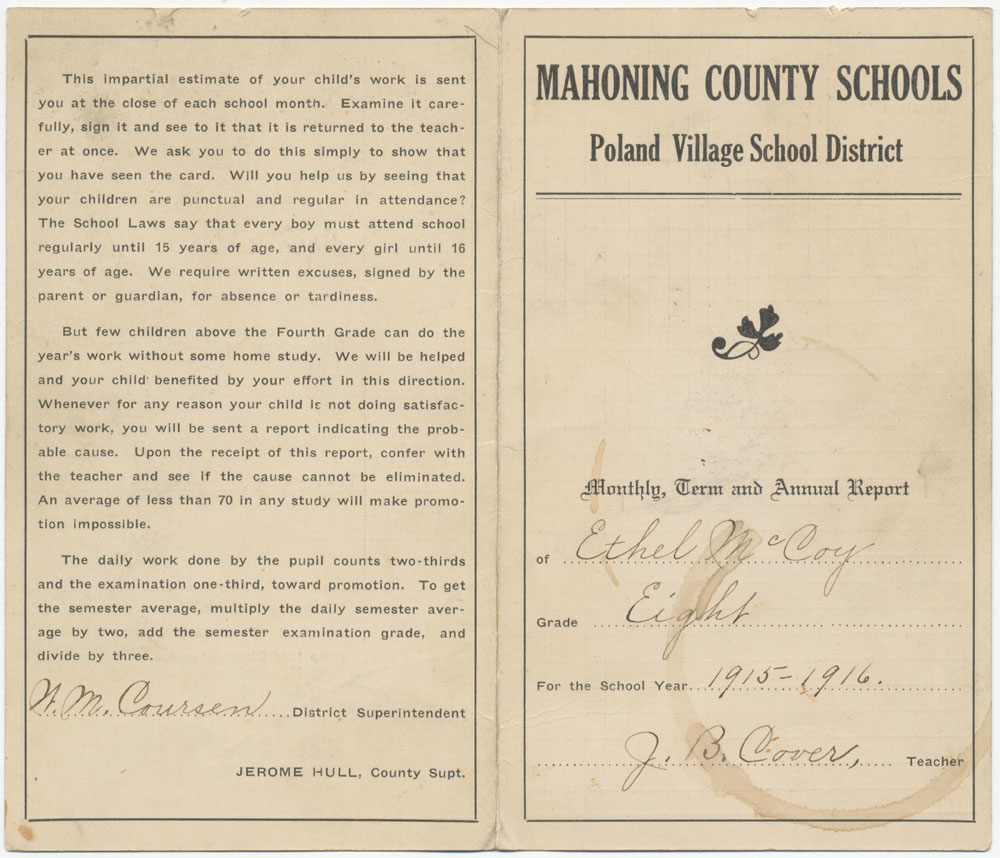 This impartial estimate of your child's work is sent
you at the close of each school month. Examine it care-
fully, sign it and see to it that it is returned to the teach-
er at once. We ask you to do this simply to show that
you have seen the card. Will you help us by seeing that
your children are punctual and regular in attendance?
The School Laws say that every boy must attend school
regularly until 15 years of age, and every girl until 16
years of age. We require written excuses, signed by the
parent or guardian, for absence or tardiness.
But few children above the Fourth Grade can do the
year's work without some home study. We will be helped
and your child benefited by your effort in this direction.
Whenever for any reason your child is not doing satisfac-
tory work, you will be sent a report indicating the prob-
able cause. Upon the receipt of this report, confer with
the teacher and see if the cause cannot be eliminated.
An average of less than 70 in any study will make promo-
tion impossible.
The daily work done by the pupil counts two-thirds
and the examination one-third, toward promotion. To get
the semester average, multiply the daily semester aver-
age by two, add the semester examination grade, and
divide by three.
W. M. Coursen District Superintendent
JEROME HULL, County Supt.
MAHONING COUNTY SCHOOLS
Poland Village School District
Monthly, Term and Annual Report
of Ethel McCoy
Grade Eight
For the School Year 1915-1916.
J. B. Cover, Teacher